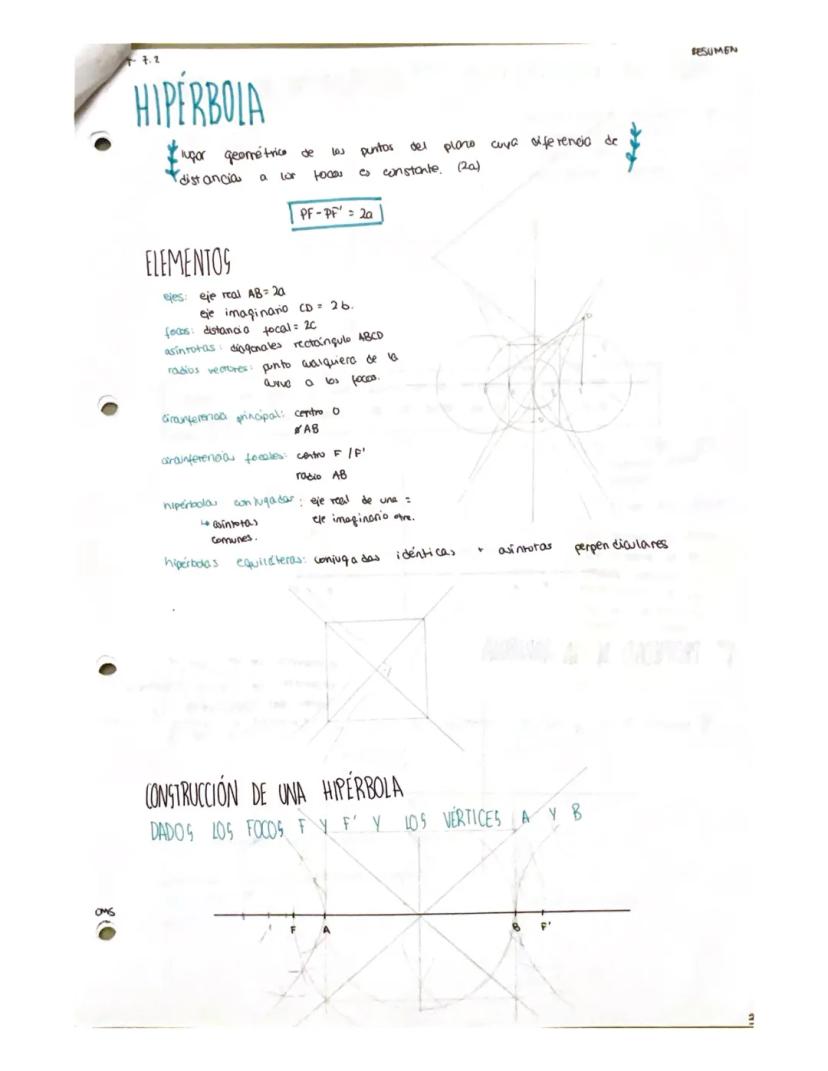 T 7.2
RESUMEN
HIPÉRBOLA
lugar geométrico de los puntos del plano cuya diferencia de
distancia a los focos es constante. (2a)
PF - PF' = 2a
ELEMENTOS
ejes: eje real AB = 2a
eje imaginario CD = 2b.
focos: distancia focal = 2c
asíntotas: diagonales rectángulo ABCD
radios vectores: punto cualquiera de la
curva a los focos.
circunferencia principal: centro O
ø AB
circunferencias focales: centro F / F'
radio AB
hipérbolas conjugadas: eje real de una =
eje imaginario otra.
↳ asíntotas
comunes.
hipérbolas equiláteras: conjugadas idénticas + asíntotas perpendiculares
CONSTRUCCIÓN DE UNA HIPÉRBOLA
DADOS LOS FOCOS F Y F' Y LOS VÉRTICES A Y B
F A B F'
2